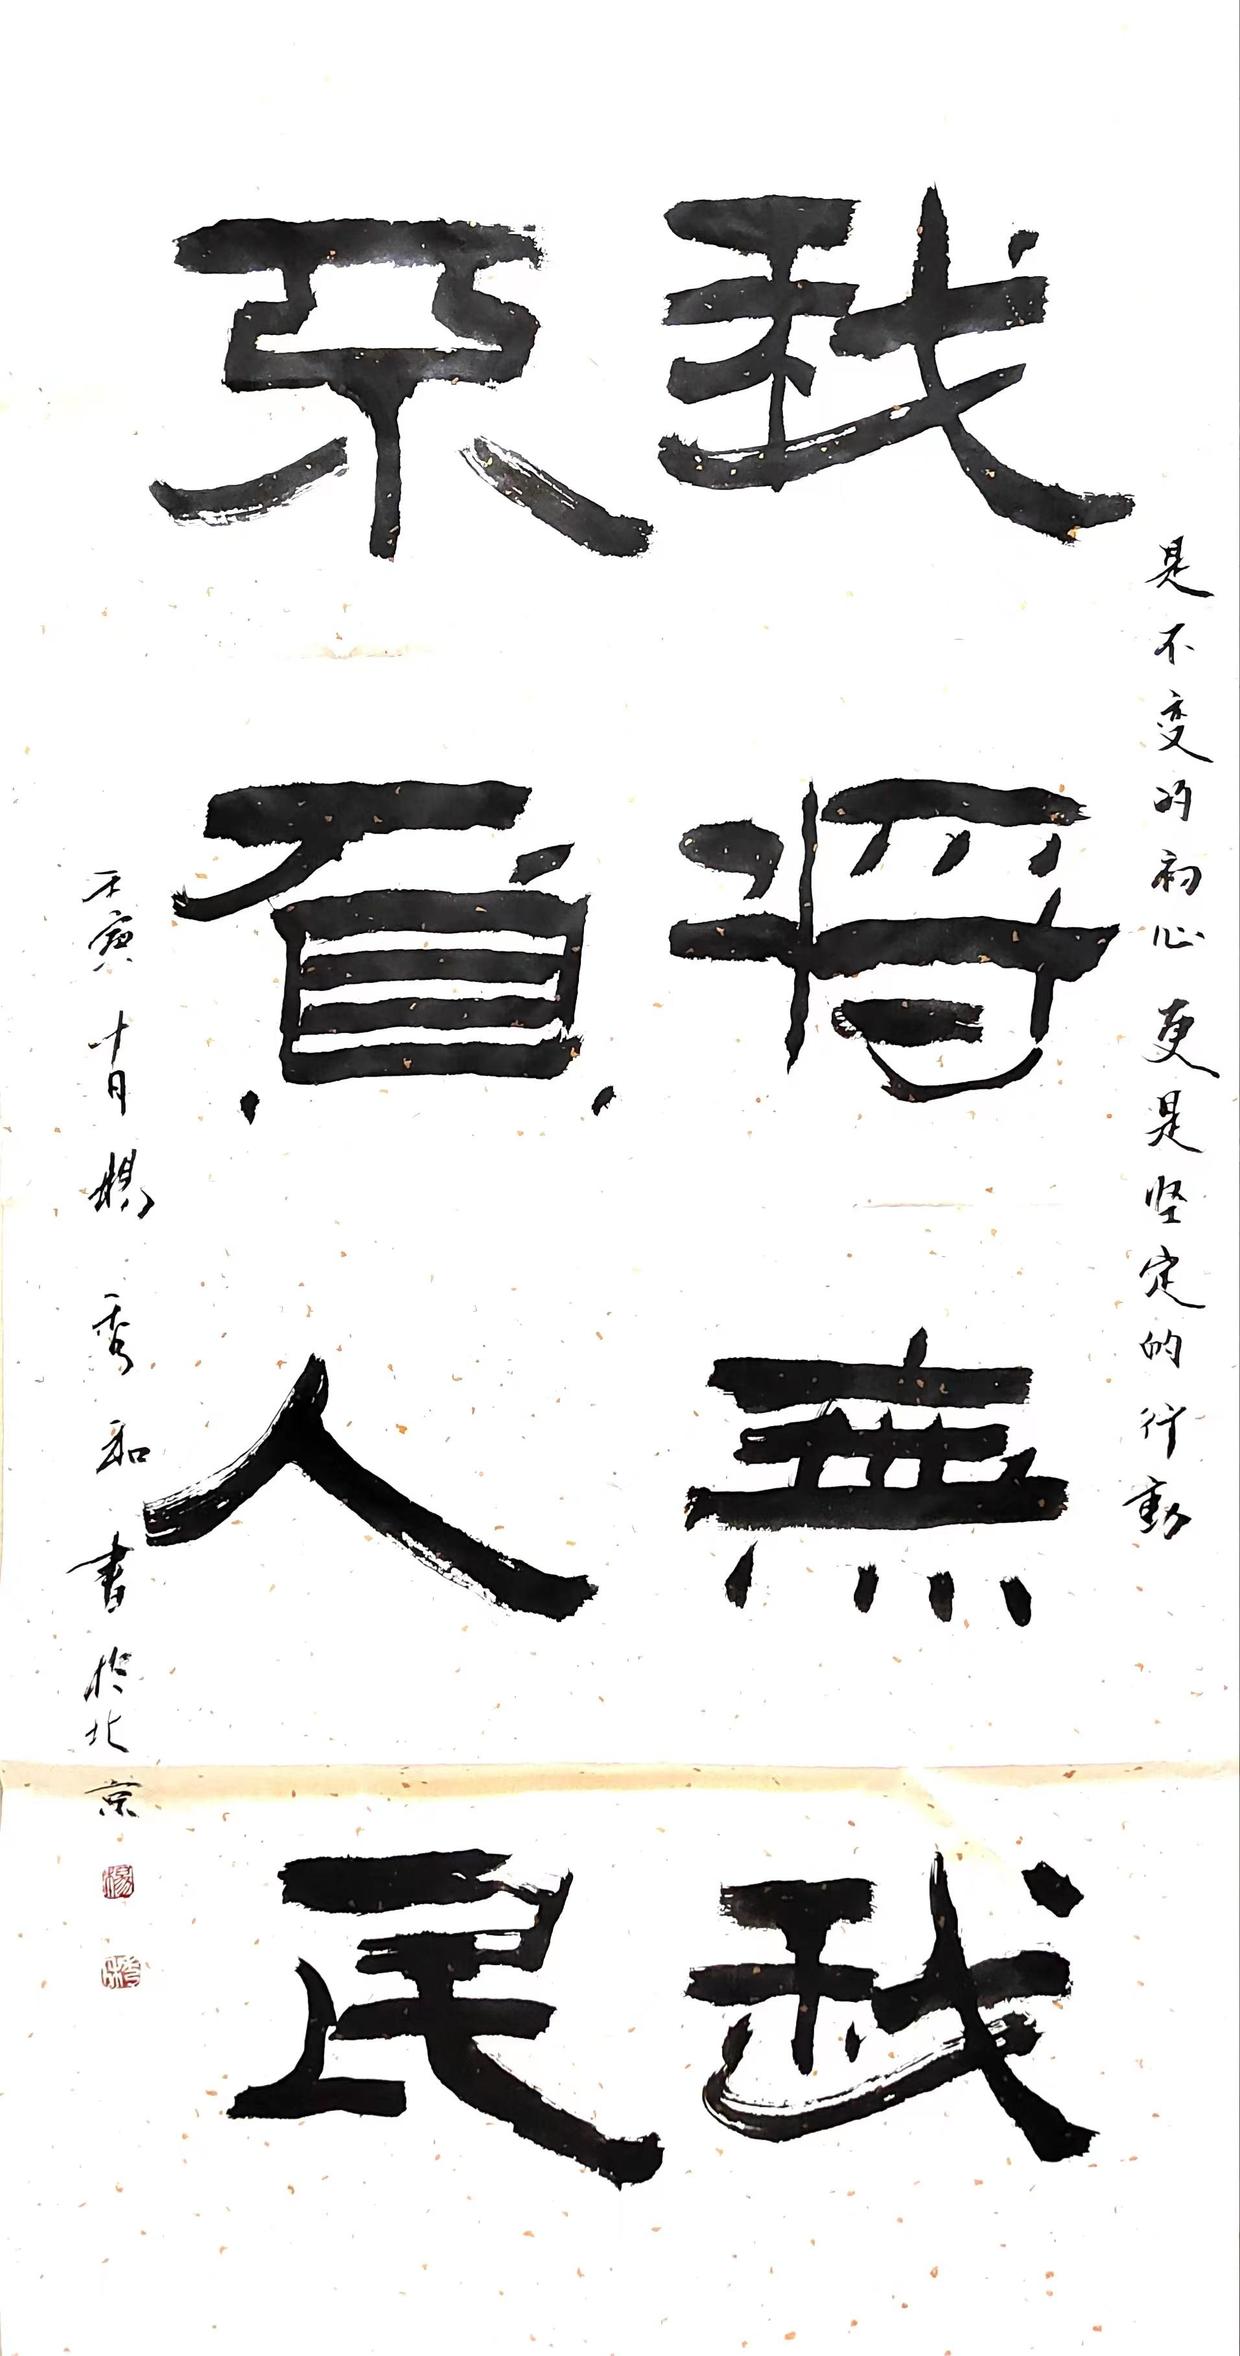 是不变的初心 更是坚定的行動
我將無我
不負人民
壬寅十月楊秀和書於北京
楊